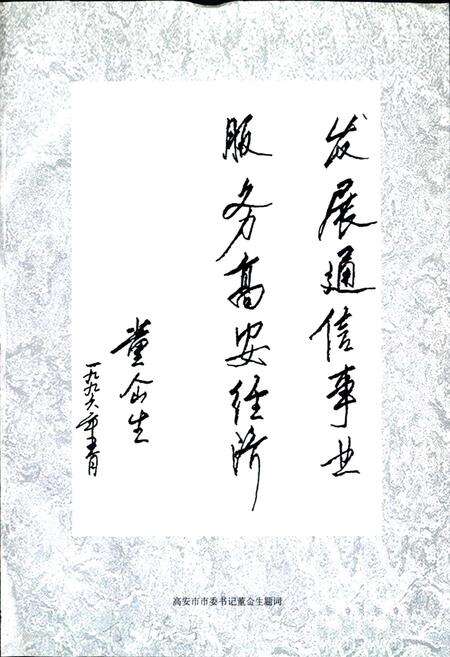 发展通信事业
服务高安经济
董仚生
一九九六年十一月
高安市市委书记董仚生题词